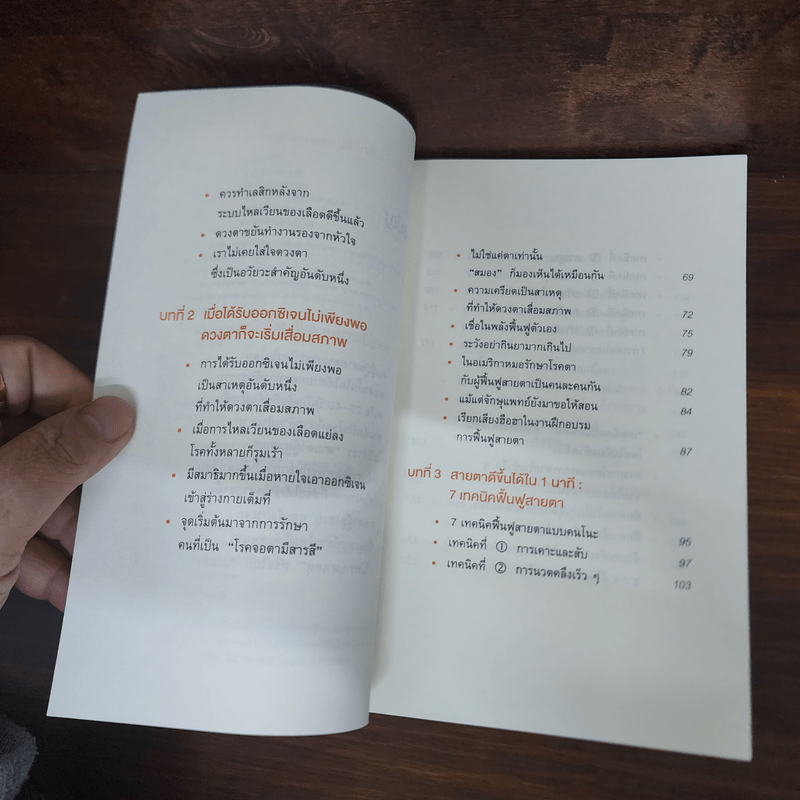 • ควรทำเลสิกหลังจาก
ระบบไหลเวียนของเลือดดีขึ้นแล้ว
• ดวงตาขยันทำงานรองจากหัวใจ
• เราไม่เคยใส่ใจดวงตา
ซึ่งเป็นอวัยวะสำคัญอันดับหนึ่ง
บทที่ 2 เมื่อได้รับออกซิเจนไม่เพียงพอ
ดวงตาก็จะเริ่มเสื่อมสภาพ
• การได้รับออกซิเจนไม่เพียงพอ
เป็นสาเหตุอันดับหนึ่ง
ที่ทำให้ดวงตาเสื่อมสภาพ
• เมื่อการไหลเวียนของเลือดแย่ลง
โรคทั้งหลายก็รุมเร้า
• มีสมาธิมากขึ้นเมื่อหายใจเอาออกซิเจน
เข้าสู่ร่างกายเต็มที่
• จุดเริ่มต้นมาจากการรักษา
คนที่เป็น “โรคจอตามีสารสี”
• ไม่ใช่แค่ตาเท่านั้น
“สมอง” ก็มองเห็นได้เหมือนกัน 69
• ความเครียดเป็นสาเหตุ
ที่ทำให้ดวงตาเสื่อมสภาพ 72
• เชื่อในพลังฟื้นฟูตัวเอง 75
• ระวังอย่ากินยามากเกินไป 79
• ในอเมริกาหมอรักษาโรคตา
กับผู้ฟื้นฟูสายตาเป็นคนละคนกัน 82
• แม้แต่จักษุแพทย์ยังมาขอให้สอน 84
• เรียกเสียงฮือฮาในงานฝึกอบรม
การฟื้นฟูสายตา 87
บทที่ 3 สายตาดีขึ้นได้ใน 1 นาที :
7 เทคนิคฟื้นฟูสายตา
• 7 เทคนิคฟื้นฟูสายตาแบบคนโนะ 95
• เทคนิคที่ ① การเคาะและสับ 97
• เทคนิคที่ ② การนวดคลึงเร็ว ๆ 103